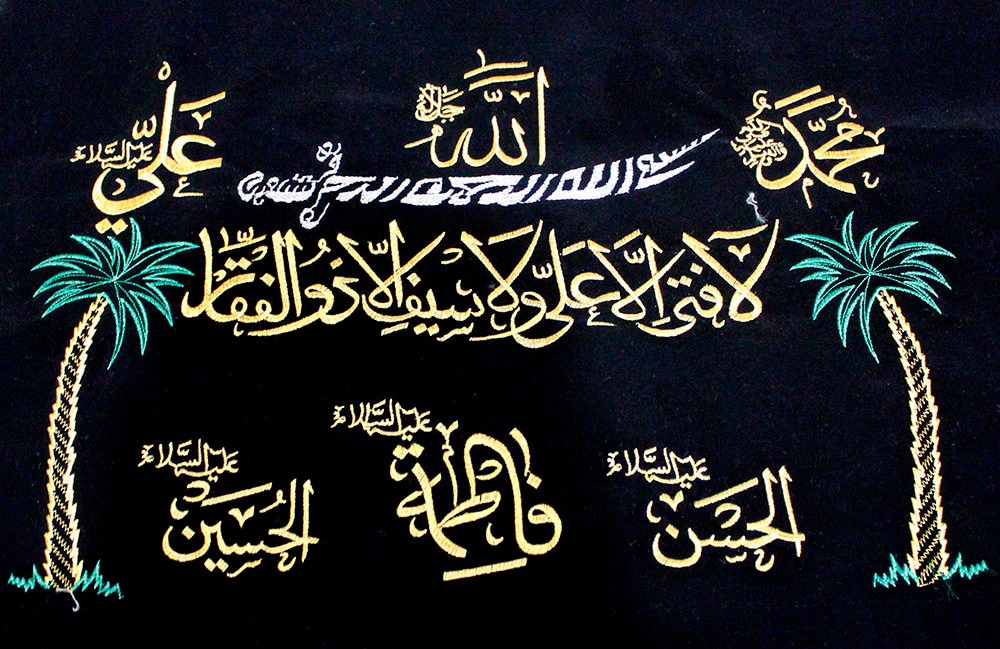 محمّد
اللّٰه جل جلاله
عَلْيّ عليه السلام
بسم الله الرحمن الرحيم
لَا فتىٰ اِلَّا عَلىّ وَلَا سيْفِ الّا ذُو الفقار
الحَسَن عليه السلام
فاطمة عليه السلام
الحُسَين عليه السلام